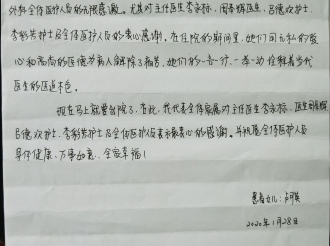 外科全体医护人员的无限感激。尤其对主任医生李永标,周吾辉医生,吕德欢护士,
李彩芳护士及全体医护人员的衷心感谢。在住院的期间里,她们用无私的爱
心和高尚的医德为病人解除了痛苦。她们的一言一行、一举一动 诠释着当代
医生的医道本色。
现在马上就要出院了,在此,我代表全体家属对主任医生李永标,医生周
吕德欢护士,李彩芳护士及全体医护人员表示最衷心的感谢。并祝愿全体医护人员
身体健康,万事如意,全家幸福!
患者女儿:卢
2020年1月28日